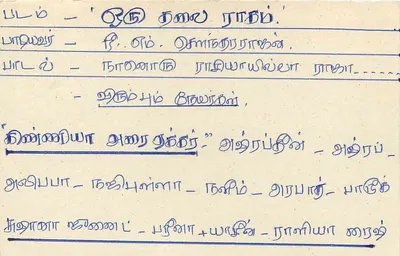 படம் - 'ஒரு தலை ராகம்.'
பாடியவர் - டீ. எம். சௌந்தரராஜன்.
பாடல் - நானொரு ராசியாயில்லா ராஜா......
- விரும்பும் நேயர்கள்.
"கிண்ணியா அரை தக்கர்" அஷ்ரப்டீன் - அஷ்ரப் -
அலிபாபா - நஜிபுள்ளா - நளீம் - அரபாத் - பாரூக்
சுஹானா ஜுனைட் - பரீனா + யாசீன் - ராலியா ரைஷ்